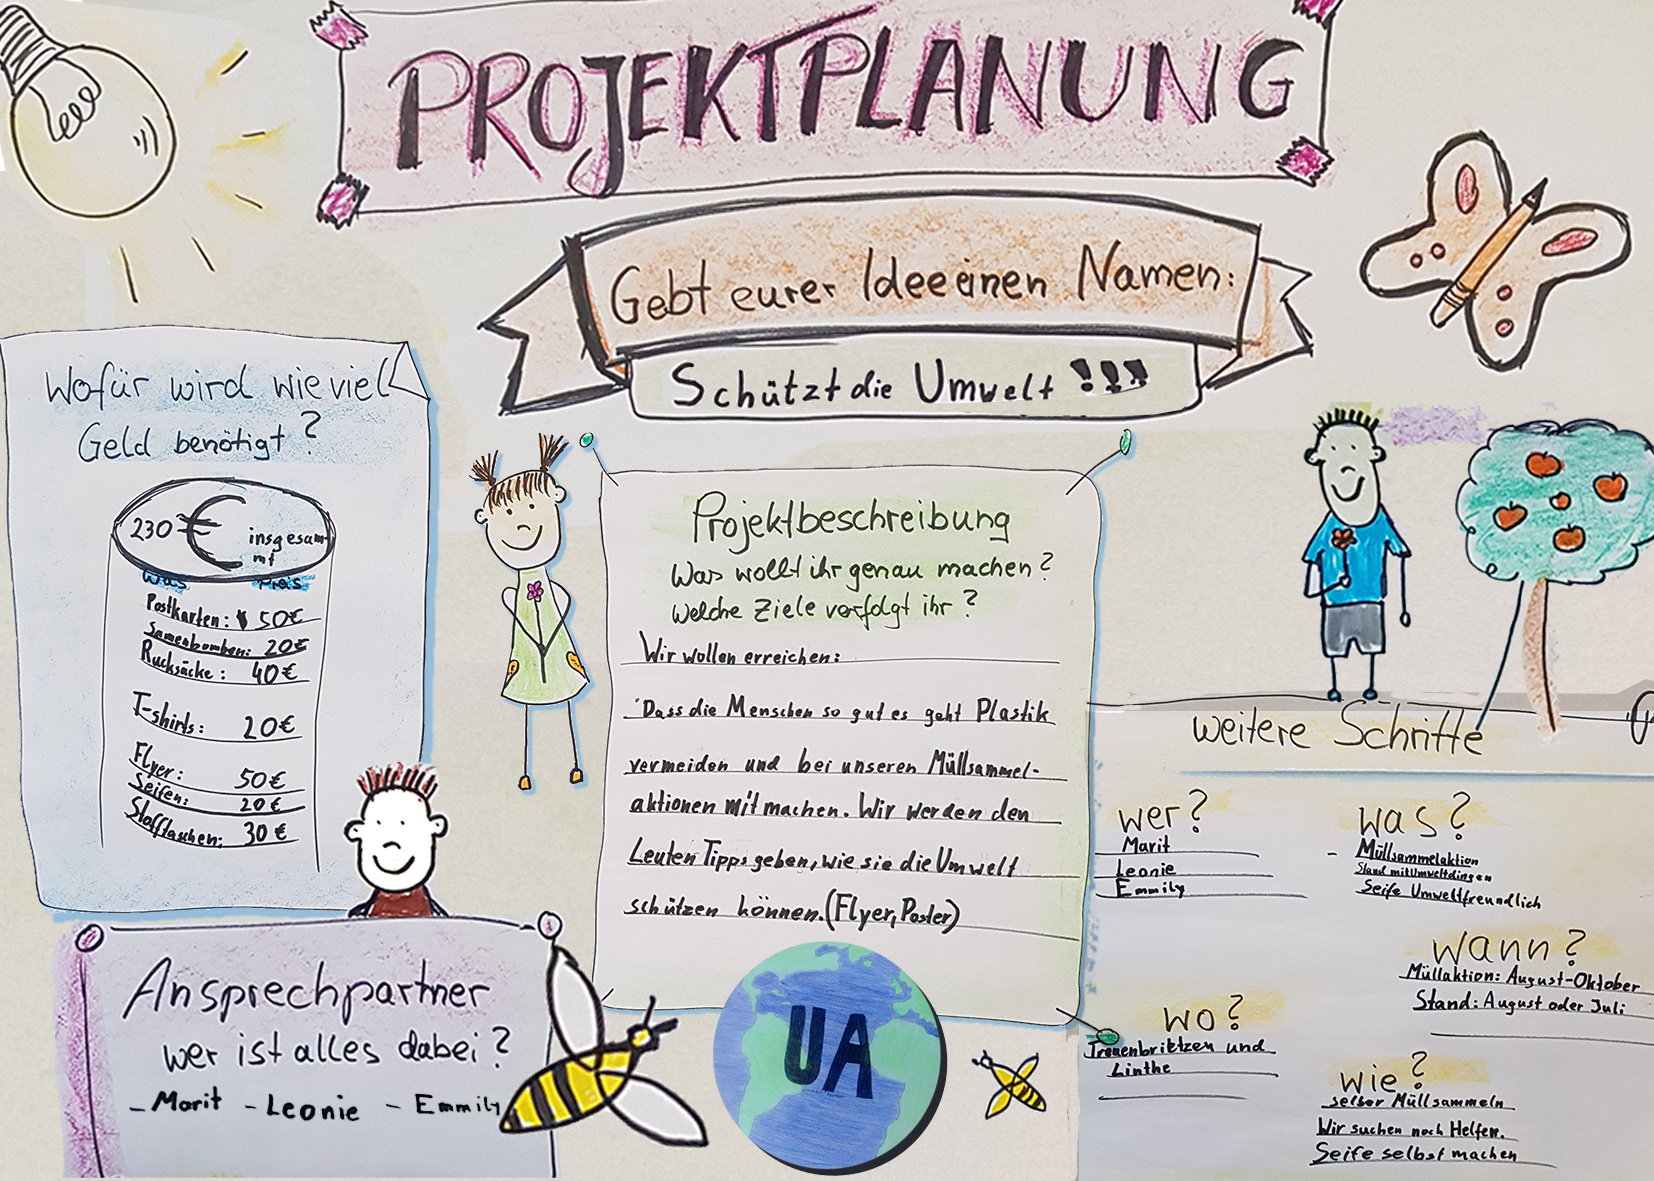 PROJEKTPLANUNG
Gebt eurer Idee einen Namen:
Schützt die Umwelt !!!
Wofür wird wie viel
Geld benötigt?
230 €
insgesam-
mt
Was Preis
Postkarten: 50€
Samenbomben: 20€
Rucksäcke: 40€
T-shirts: 20€
Flyer: 50€
Seifen: 20€
Stofftaschen: 30€
Projektbeschreibung
Was wollt ihr genau machen?
Welche Ziele verfolgt ihr?
Wir wollen erreichen:
Dass die Menschen so gut es geht Plastik
vermeiden und bei unseren Müllsammel-
aktionen mitmachen. Wir werden den
Leuten Tipps geben, wie sie die Umwelt
schützen können. (Flyer, Poster)
Ansprechpartner
wer ist alles dabei?
- Marit - Leonie - Emmily
UA
weitere Schritte
wer?
Marit
Leonie
Emmily
was?
- Müllsammelaktion
Stand mit Umweltdingen
Seife Umweltfreundlich
wann?
Müllaktion: August-Oktober
Stand: August oder Juli
wo?
Treuenbrietzen und
Linthe
wie?
selber Müllsammeln
Wir suchen noch Helfer.
Seife selbst machen